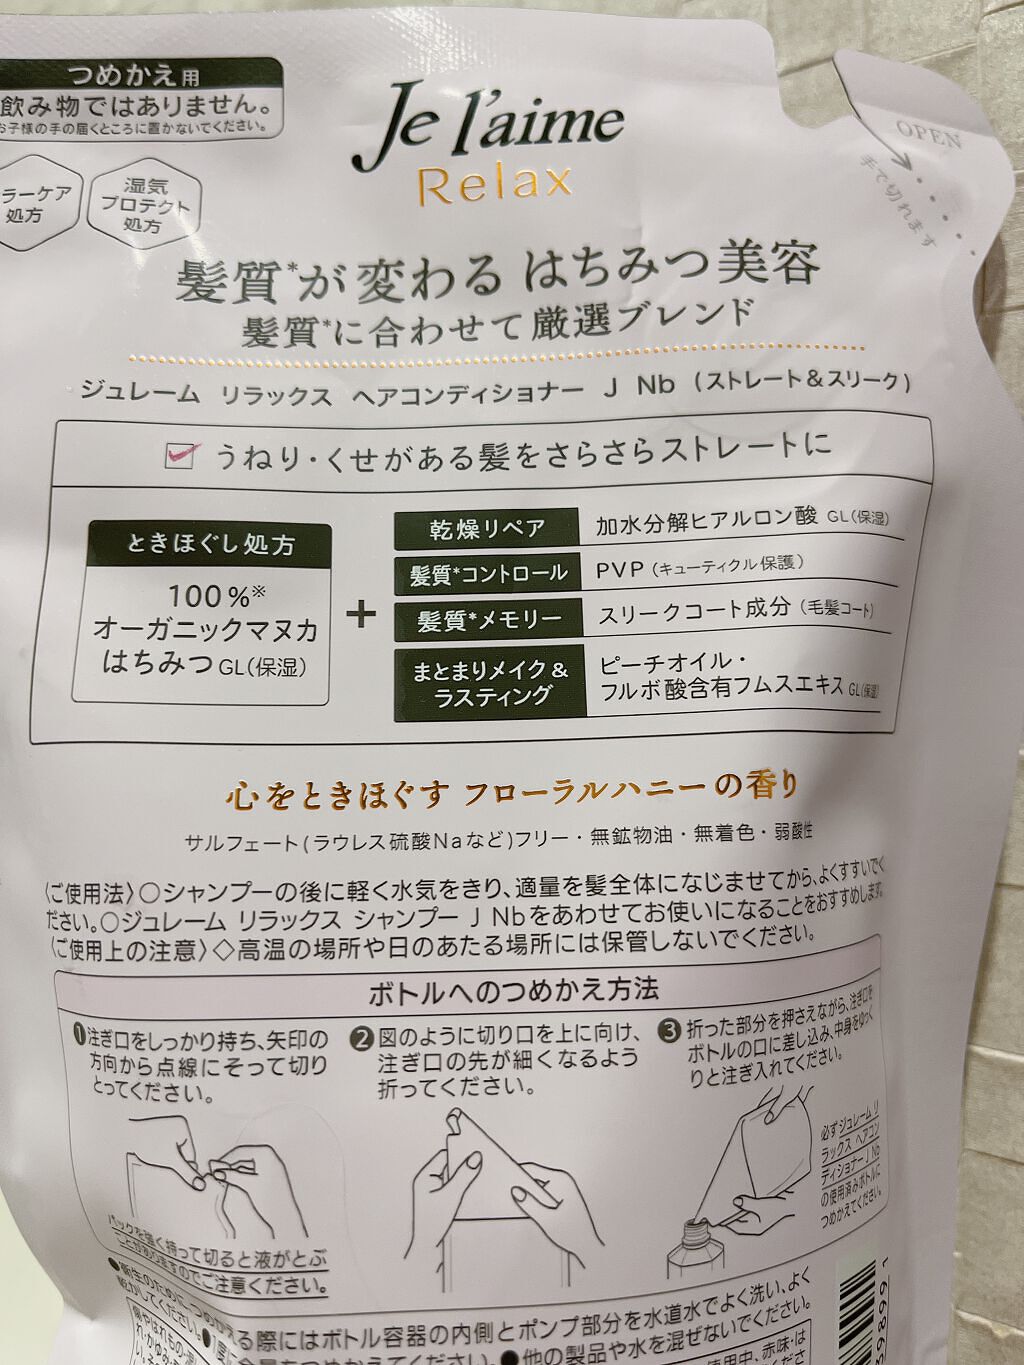 つめかえ用
飲み物ではありません。
お子様の手の届くところに置かないでください。
ラーケア
処方
湿気
プロテクト
処方
Je l'aime
Relax
OPEN
手で切れます
髪質*が変わる はちみつ美容
髪質*に合わせて厳選ブレンド
ジュレーム リラックス ヘアコンディショナー J Nb (ストレート&スリーク)
うねり・くせがある髪をさらさらストレートに
ときほぐし処方
100%※
オーガニックマヌカ
はちみつGL(保湿)
+
乾燥リペア 加水分解ヒアルロン酸 GL(保湿)
髪質*コントロール PVP(キューティクル保護)
髪質*メモリー スリークコート成分(毛髪コート)
まとまりメイク&
ラスティング
ピーチオイル・
フルボ酸含有フムスエキスGL(保湿)
心をときほぐす フローラルハニーの香り
サルフェート(ラウレス硫酸Naなど)フリー・無鉱物油・無着色・弱酸性
〈ご使用法〉○シャンプーの後に軽く水気をきり、適量を髪全体になじませてから、よくすすいでく
ださい。○ジュレーム リラックス シャンプー J Nbをあわせてお使いになることをおすすめします。
〈ご使用上の注意〉◇高温の場所や日のあたる場所には保管しないでください。
ボトルへのつめかえ方法
❶注ぎ口をしっかり持ち、矢印の
方向から点線にそって切り
とってください。
❷図のように切り口を上に向け、
注ぎ口の先が細くなるよう
折ってください。
❸折った部分を押さえながら、注ぎ口を
ボトルの口に差し込み、中身をゆっく
りと注ぎ入れてください。
パックを強く持って切ると液がとぶ
ことがありますのでご注意ください。
必ずジュレーム リ
ラックス ヘアコン
ディショナー J Nb
の使用済みボトルに
つめかえてください。
●衛生のために、つめかえる際にはボトル容器の内側とポンプ部分を水道水でよく洗い、よく
乾かしてください。●1度に全量をつめかえてください。●他の製品や水を混ぜないでください。
使用中、赤味・は